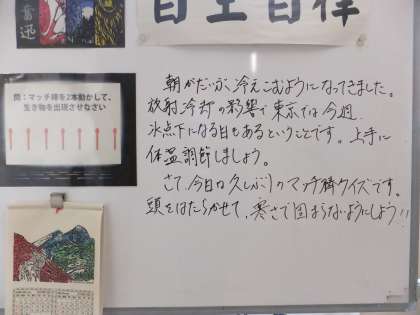 奮迅
自主自律
問：マッチ棒を2本動かして、
生き物を出現させなさい
朝がだいぶ、冷えこむようになってきました。
放射冷却の影響で東京では今週、
氷点下になる日もあるということです。上手に
体温調節しましょう。
さて、今日は久しぶりのマッチ棒クイズです。
頭をはたらかせて、寒さで固まらないようにしよう!!